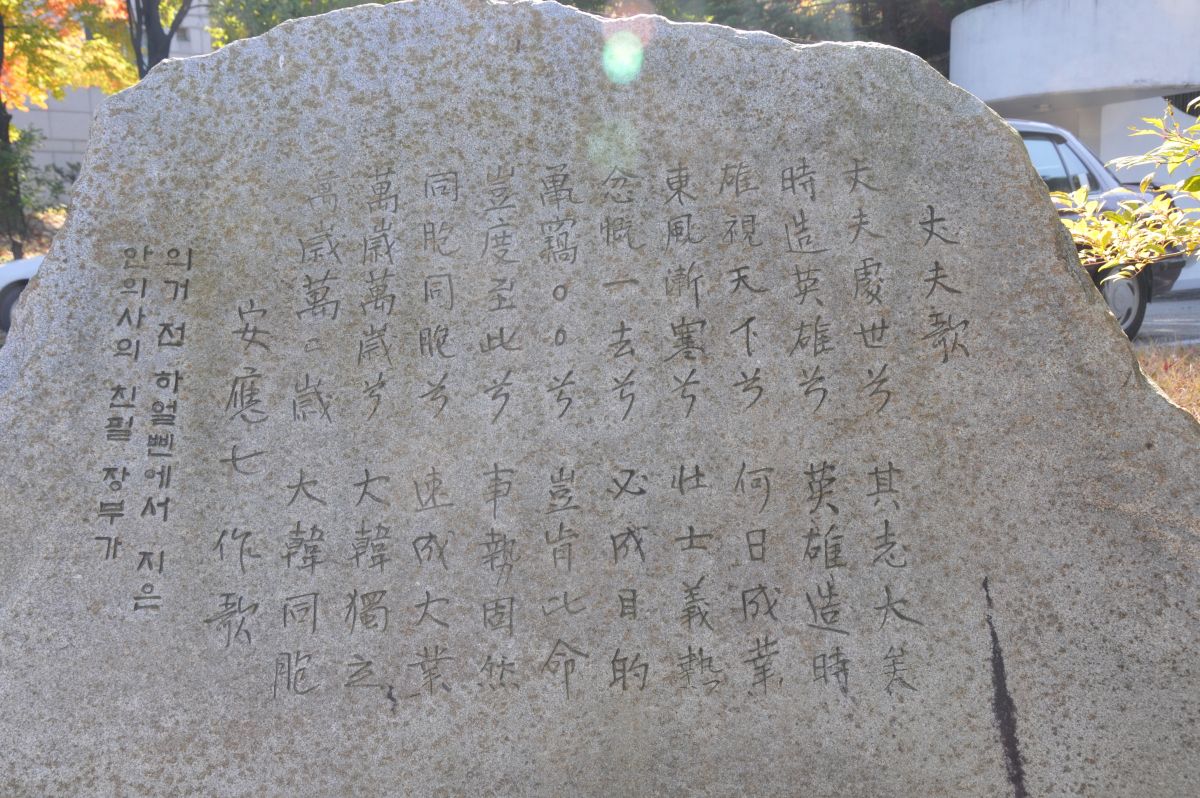 丈夫歌
丈夫處世兮 其志大矣
時造英雄兮 英雄造時
雄視天下兮 何日成業
東風漸寒兮 壯士義熱
忿慨一去兮 必成目的
鼠竊○○兮 豈肯比命
豈度至此兮 事勢固然
同胞同胞兮 速成大業
萬歲萬歲兮 大韓獨立
萬歲萬○歲 大韓同胞
安應七 作歌
의거 전 하얼삔에서 지은
안의사의 친필 장부가